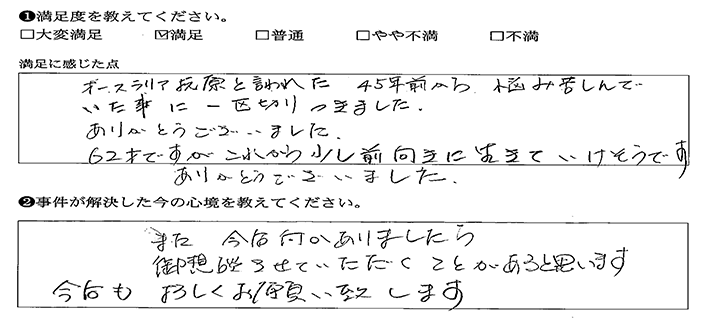 ❶満足度を教えてください。
□大変満足 ☑満足 □普通 □やや不満 □不満
満足に感じた点
オーストラリア抗原と言われた 45年前から 悩み苦しんで
いた事に 一区切りつきました.
ありがとうございました.
62才ですがこれから少し前向きに生きていけそうです
ありがとうございました.
❷事件が解決した今の心境を教えてください。
また 今后何かありましたら
御想談させていただくことがあると思います
今后も よろしくお願い致します